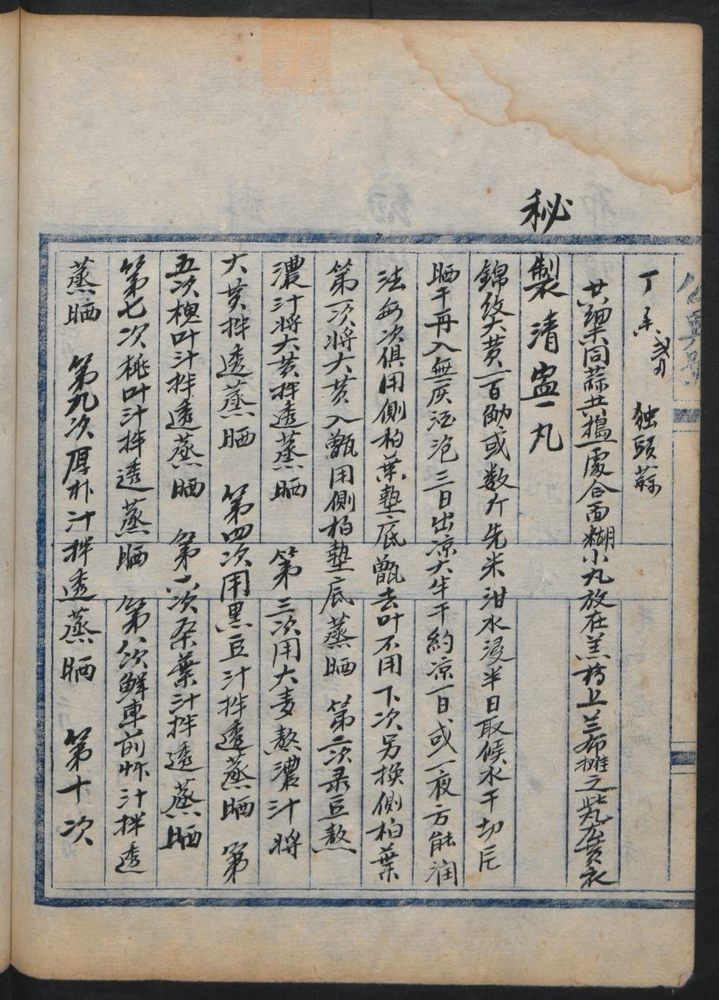 丁香 弍 独頭蒜
共藥同蒜共搗一處合面糊小丸放在羔藥上兰布攤之
秘
製清盅一丸
錦紋大黃一百觔或数斤先米泔水浸半日取候水干切片
晒干再入無灰酒泡三日出凉大半干約凉一日或一夜方能潤
法每次俱用側柏葉墊底甑去叶不用下次另換側柏葉
第一次將大黃入甑用側柏墊底蒸晒 第二次录豆熬
濃汁將大黃拌透蒸晒 第三次用大麦熬濃汁將
大黃拌透蒸晒 第四次用黑豆汁拌透蒸晒 第
五次槐叶汁拌透蒸晒 第六次桑葉汁拌透蒸晒
第七次桃叶汁拌透蒸晒 第八次鮮車前汁拌透
蒸晒 第九次厚朴汁拌透蒸晒 第十次